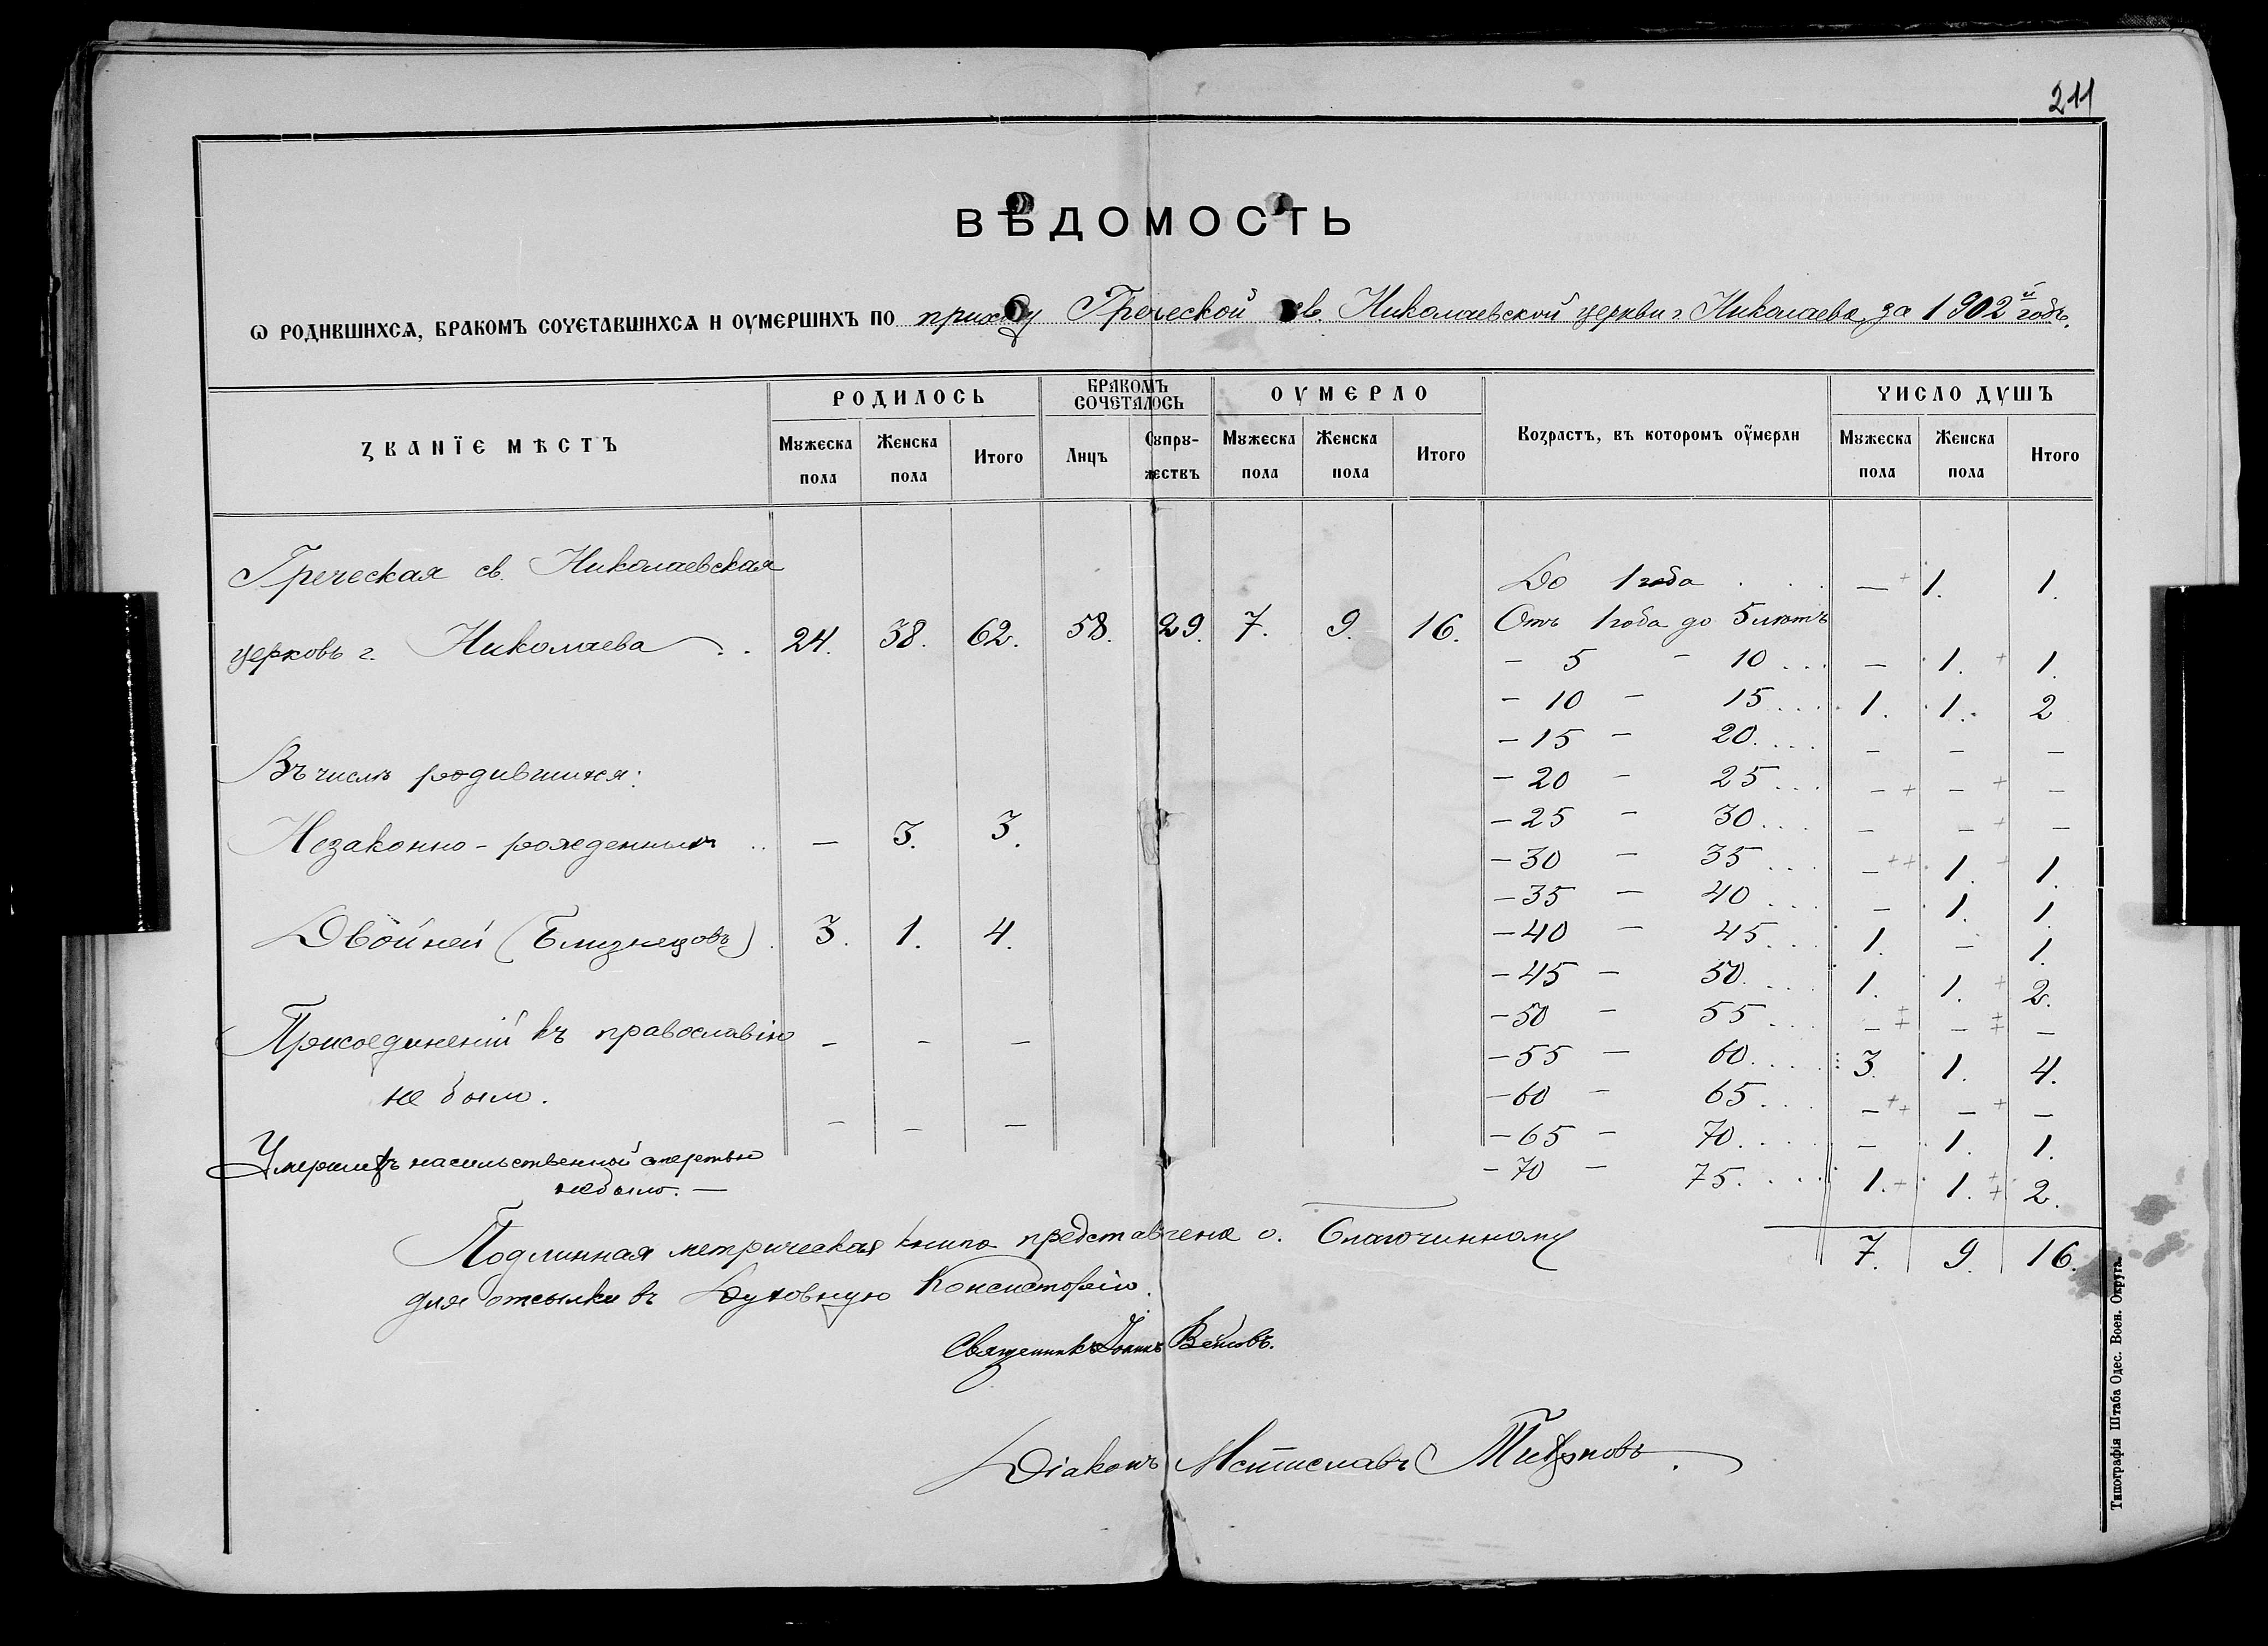 211
ВѢДОМОСТЬ
Ѡ РОДИВШИХСѦ, БРАКОМЪ СОЧЕТАВШИХСѦ И ОУМЕРШИХЪ ПО приходу Греческой св. Николаевской церкви г. Николаева за 1902й годъ.
ЗВАНЇЕ МѢСТЪ
РОДИЛОСЬ
БРАКОМЪ СОЧЕТАЛОСЬ
ОУМЕРЛО
Возрастъ, въ которомъ оумерли
ЧИСЛО ДУШЪ
Мꙋжеска пола
Женска пола
Итого
Лицъ
Сꙋпрꙋ-жествъ
Мꙋжеска пола
Женска пола
Итого
Мꙋжеска пола
Женска пола
Итого
Греческая св. Николаевская
церковь г. Николаева . . 24. 38. 62. 58. 29. 7. 9. 16.
Въ числѣ родившихся:
Незаконно-рожденныхъ .. — 3. 3.
Двойней (Близнецовъ) . 3. 1. 4.
Присоединеній къ православію — — —
не было.
Умершихъ насильственной смертью — — —
не было. —
До 1 года . . . — 1. 1.
Отъ 1 года до 5 лѣтъ
— 5 — 10 . . . — 1. 1.
— 10 — 15 . . . . 1. 1. 2
— 15 — 20 . . . . — — —
— 20 — 25 . . . — — —
— 25 — 30 . . . — — —
— 30 — 35 . . . — 1. 1.
— 35 — 40 . . . — 1. 1.
— 40 — 45 . . . 1. — 1.
— 45 — 50 . . . . 1. 1. 2.
— 50 — 55 . . . — — —
— 55 — 60 . . . . 3. 1. 4.
— 60 — 65 . . . — — —
— 65 — 70 . . . . — 1. 1.
— 70 — 75 . . . . 1. 1. 2.
7. 9. 16.
Подлинная метрическая книга представлена о. Благочинному
для отсылки въ Духовную Консисторію.
Священникъ Іоаннъ
Діаконъ Мстиславъ
Типографія Штаба Одес. Воен. Округа.